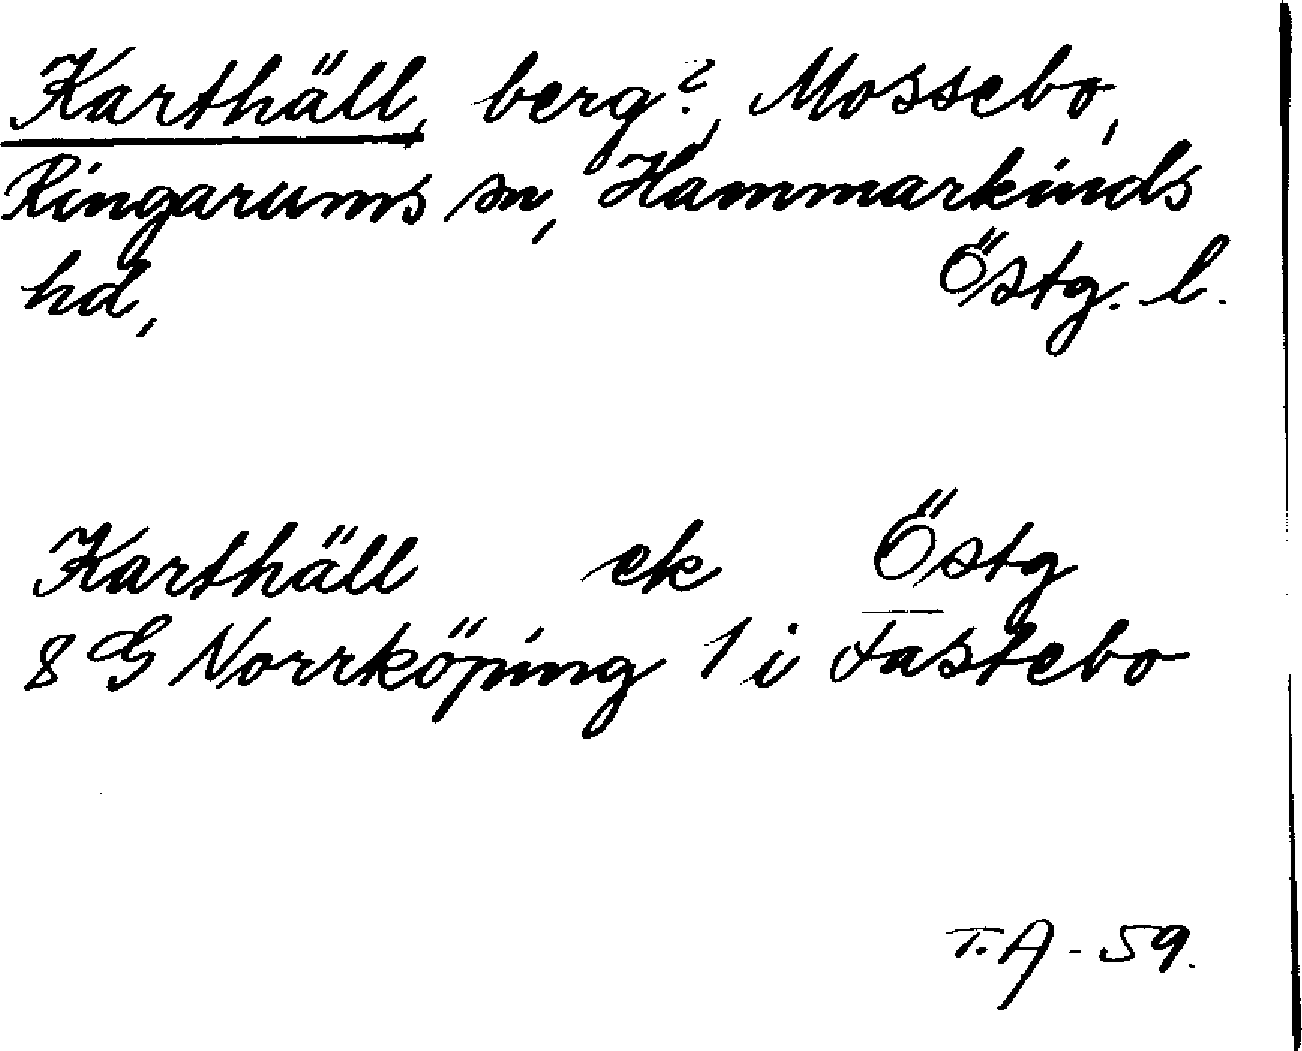 Karthäll, berg?, Mossebo,
Ringarums sn, Hammarkinds
hd, Östg. l.
Karthäll ek Östg
8 G Norrköping 1 i Fastebo
T.A - 59.